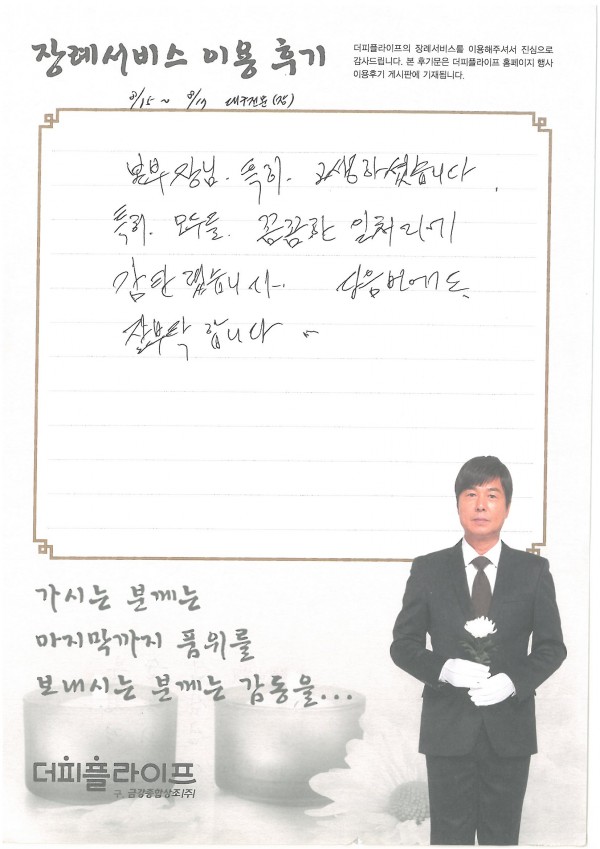 장례서비스 이용 후기
더피플라이프의 장례서비스를 이용해주셔서 진심으로
감사드립니다. 본 후기문은 더피플라이프 홈페이지 행사
이용후기 게시판에 기재됩니다.
8/15 ~ 8/17 대구전문(장)
본부장님. 특히. 고생하셨습니다.
특히. 모두들. 꼼꼼한 일처리에
감탄 했습니다. 다음번에도.
잘부탁 합니다.
가시는 분께는
마지막까지 품위를
보내시는 분께는 감동을...
더피플라이프
구. 금강종합상조(주)